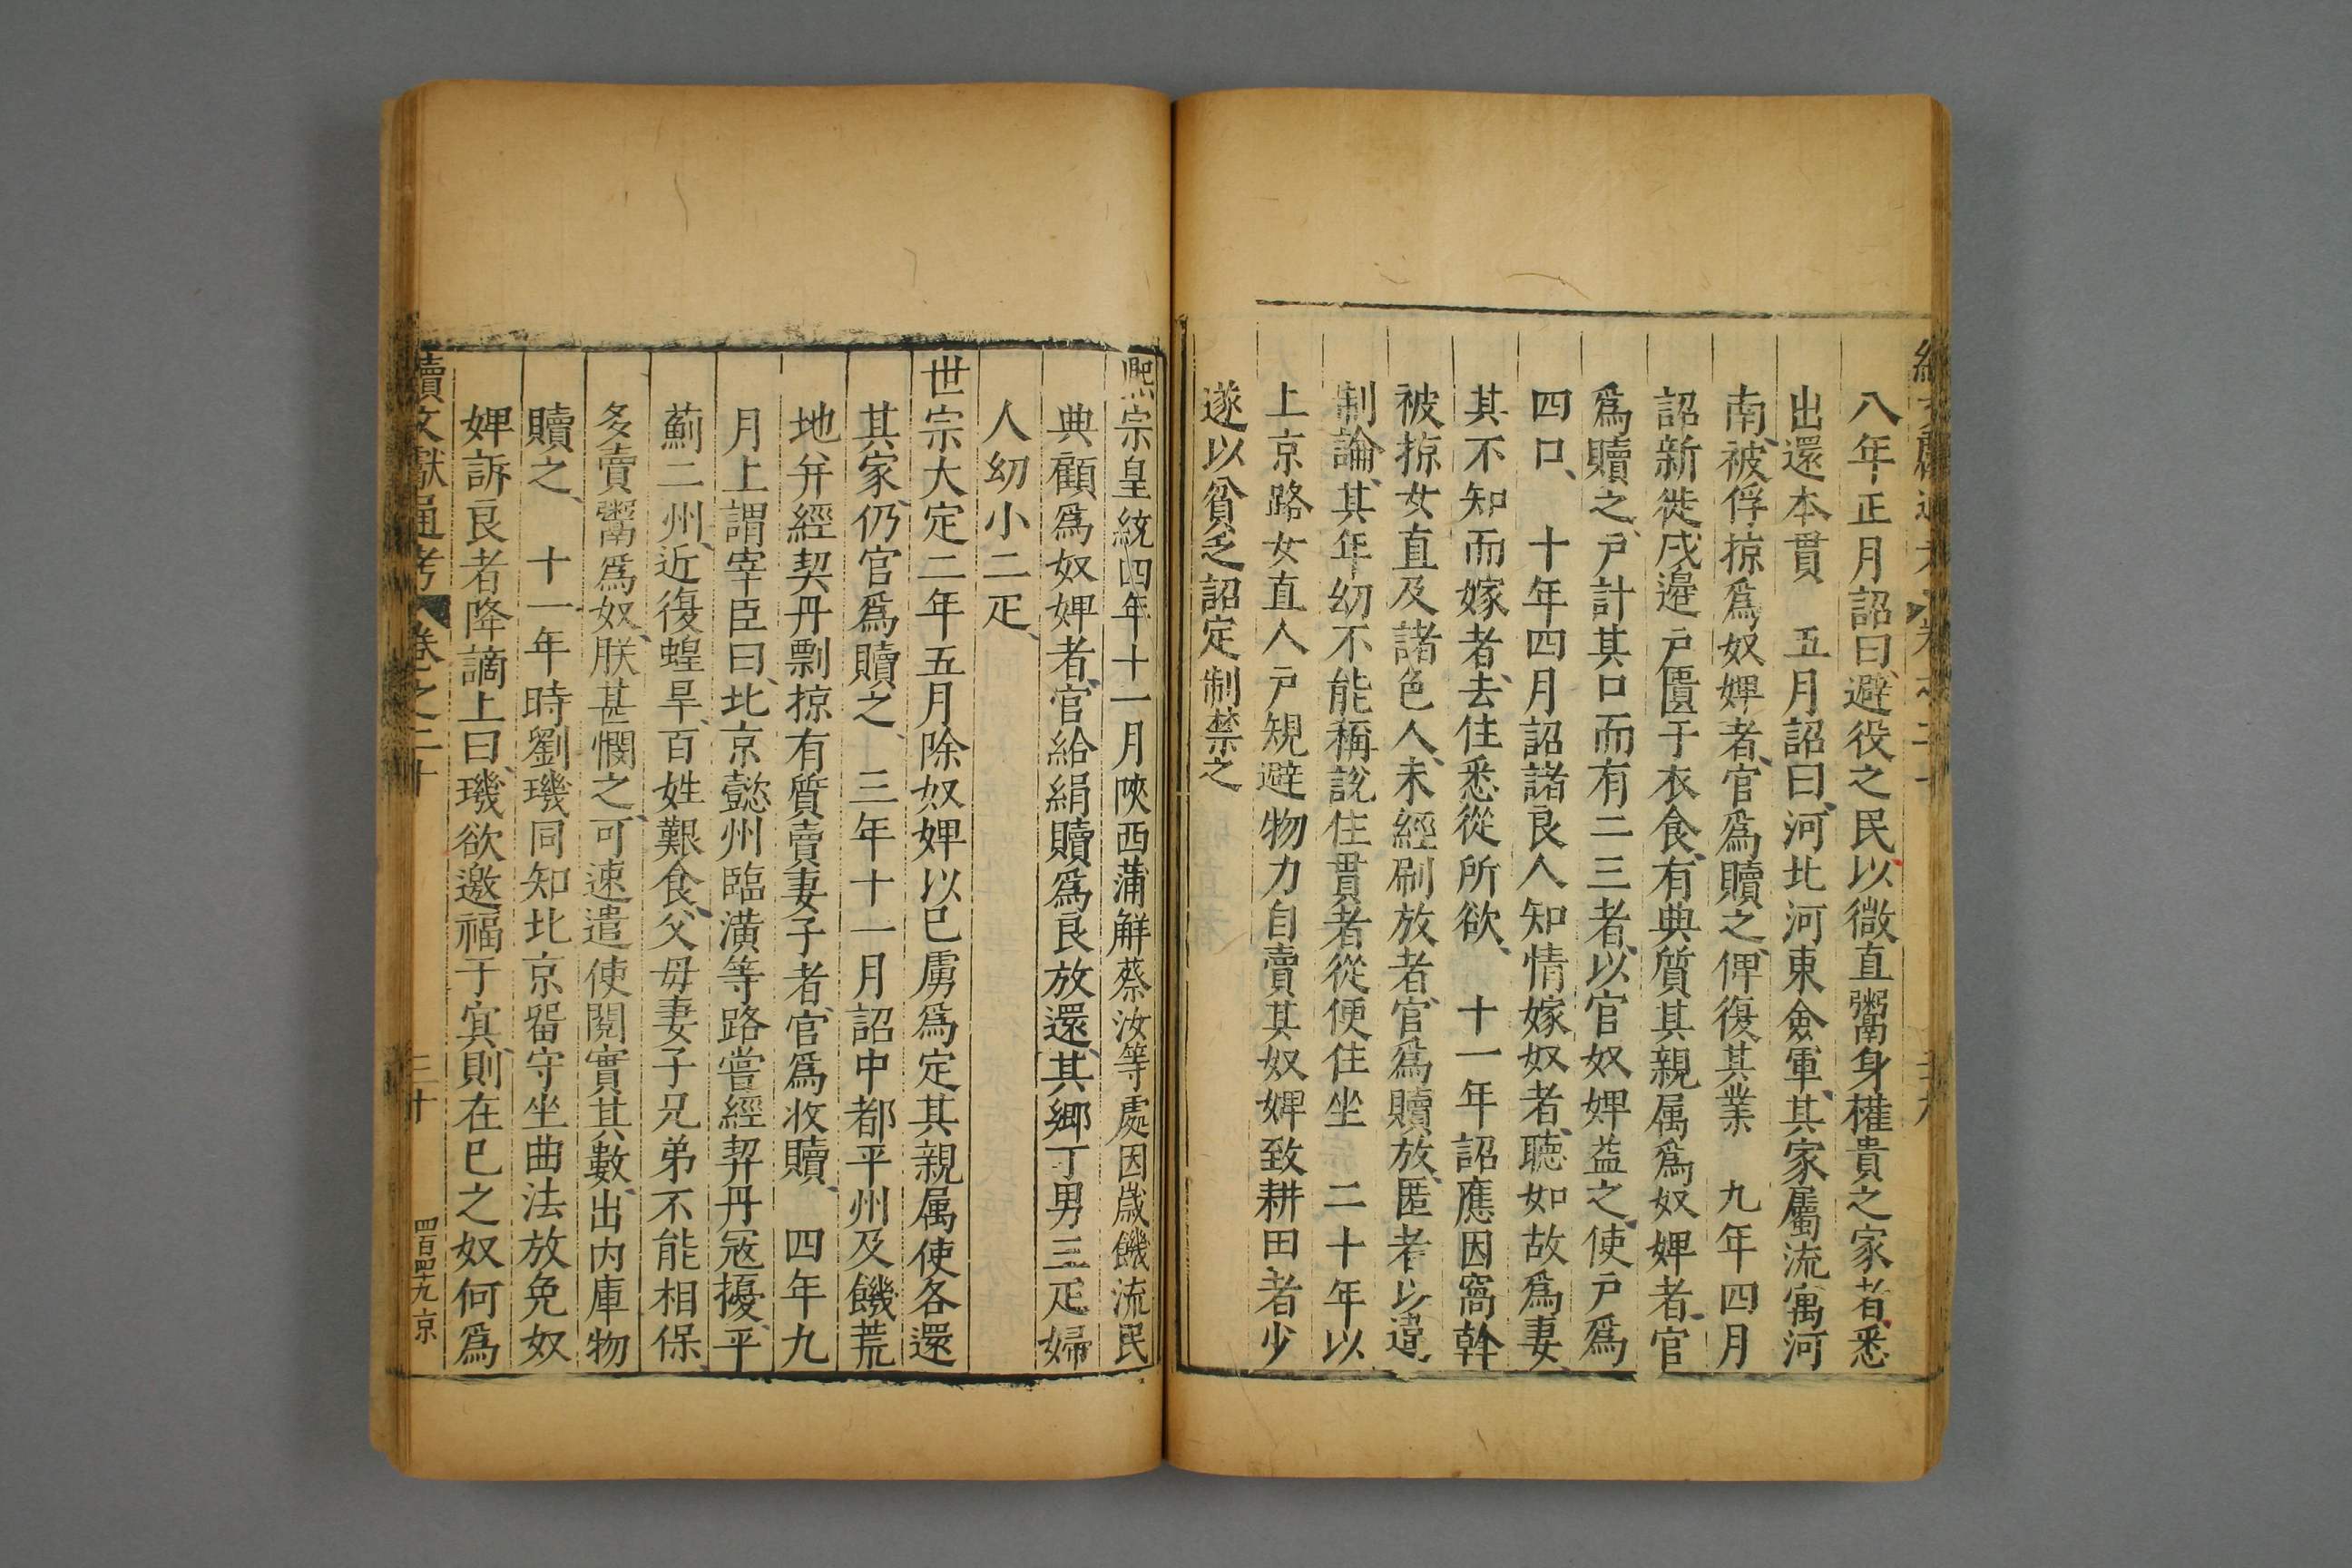 八年正月詔曰避役之民以微直鬻身權貴之家者悉
出還本貫　五月詔曰河北河東僉軍其家屬流寓河
南被俘掠爲奴婢者官爲贖之俾復其業　九年四月
詔新徙戍邉戸匱于衣食有典質其親属爲奴婢者官
爲贖之戸計其口而有二三者以官奴婢益之使戸爲
四口　十年四月詔諸良人知情嫁奴者聽如故爲妻
其不知而嫁者去住悉從所欲　十一年詔應因窩斡
被掠女直及諸色人未經刷放者官爲贖放匿者以違
制論其年幼不能稱說住貫者從便住坐　二十年以
上京路女直人戸規避物力自賣其奴婢致耕田者少
遂以貧乏詔定制禁之
熈宗皇統四年十一月陜西蒲解蔡汝等處因歲饑流民
典顧爲奴婢者官給絹贖爲良放還其鄉丁男三疋婦
人幼小二疋
世宗大定二年五月除奴婢以已虜爲定其親属使各還
其家仍官爲贖之　三年十一月詔中都平州及饑荒
地并經契丹剽掠有質賣妻子者官爲收贖　四年九
月上謂宰臣曰北京懿州臨潢等路嘗經契丹冦擾平
薊二州近復蝗旱百姓艱食父母妻子兄弟不能相保
多賣鬻爲奴朕甚憫之可速遣使閱實其數出内庫物
贖之　十一年時劉璣同知北京畱守坐曲法放免奴
婢訴良者降謫上曰璣欲邀福于㝠則在已之奴何爲
續文獻通考　卷之二十　三十　四百四十九　京